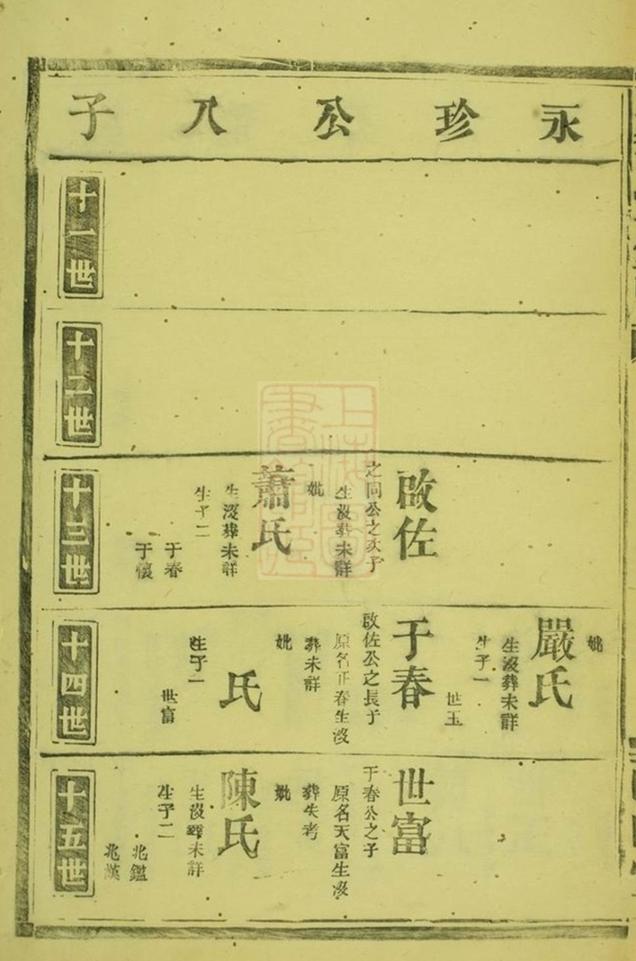 永珍公八子
十一世
十二世
十三世
啟佐
之同公之次子
生沒葬未詳
妣
蕭氏
生沒葬未詳
生子二
于春
于懷
十四世
妣
嚴氏
生沒葬未詳
生子一
世玉
于春
啟佐公之長子
原名正春生沒
葬未詳
妣
氏
生子一
世富
十五世
世富
于春公之子
原名天富生沒
葬失考
妣
陳氏
生沒葬未詳
生子二
兆鑑
兆漢